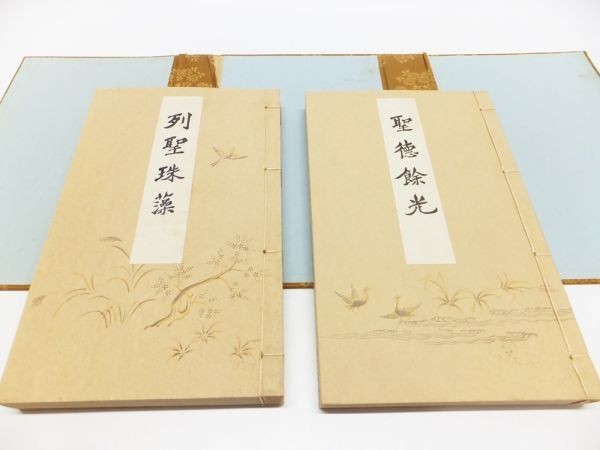 聖德餘光
列聖珠藻